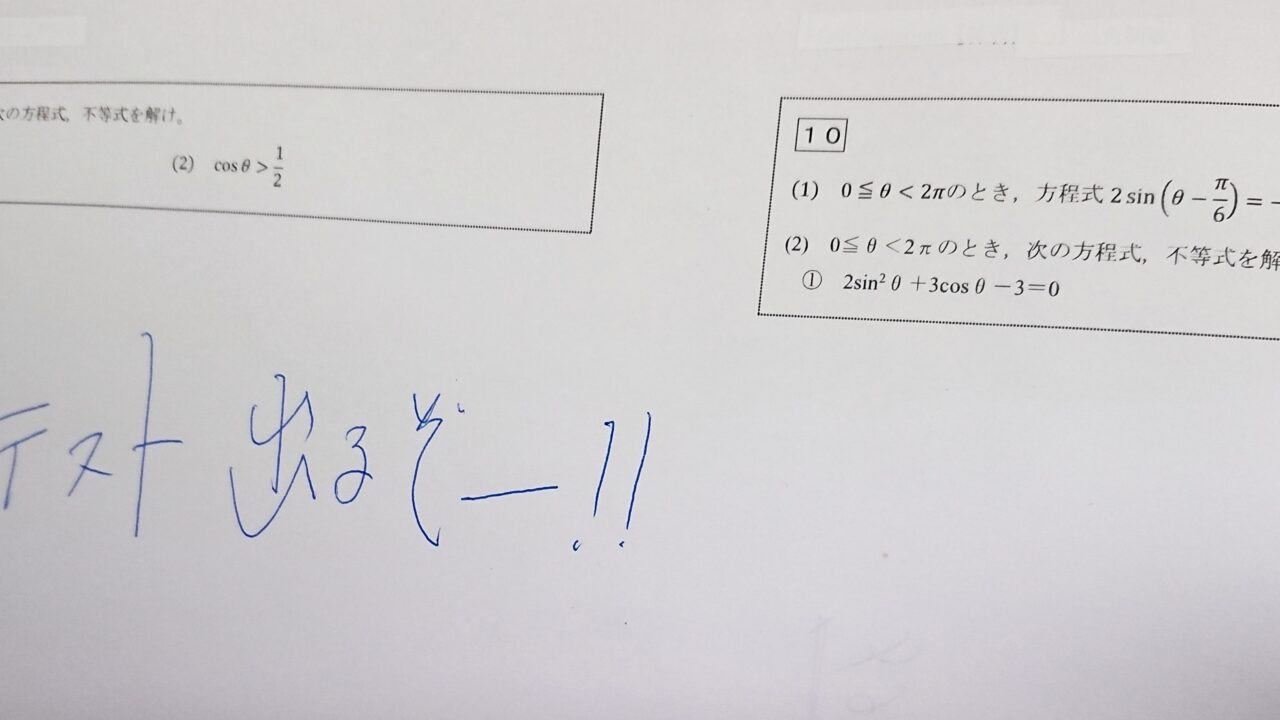 次の方程式, 不等式を解け。
(2) cosθ > 1/2
テスト 出るぞー!!
10
(1) 0≦θ<2πのとき, 方程式 2 sin(θ − π/6) = −
(2) 0≦θ<2πのとき, 次の方程式, 不等式を解
① 2sin²θ+3cosθ−3=0